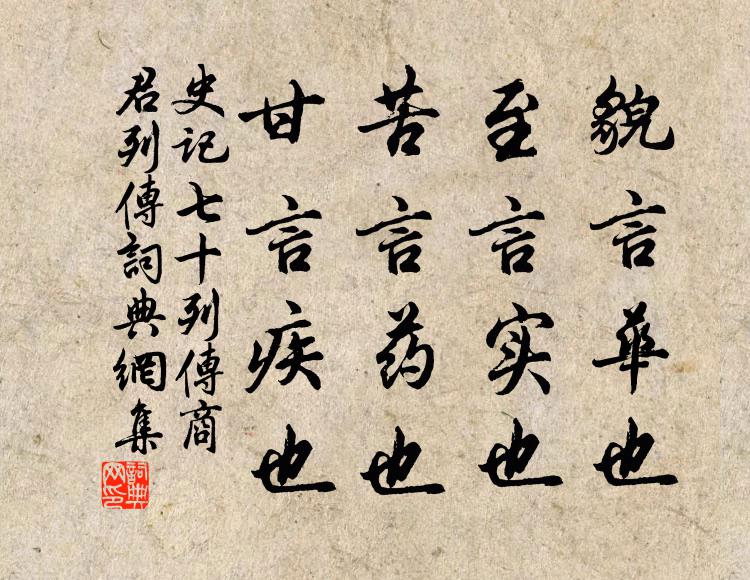 貌言華也
至言实也
苦言药也
甘言疾也
史记七十列傳商
君列傳詞典網集
詞典网印